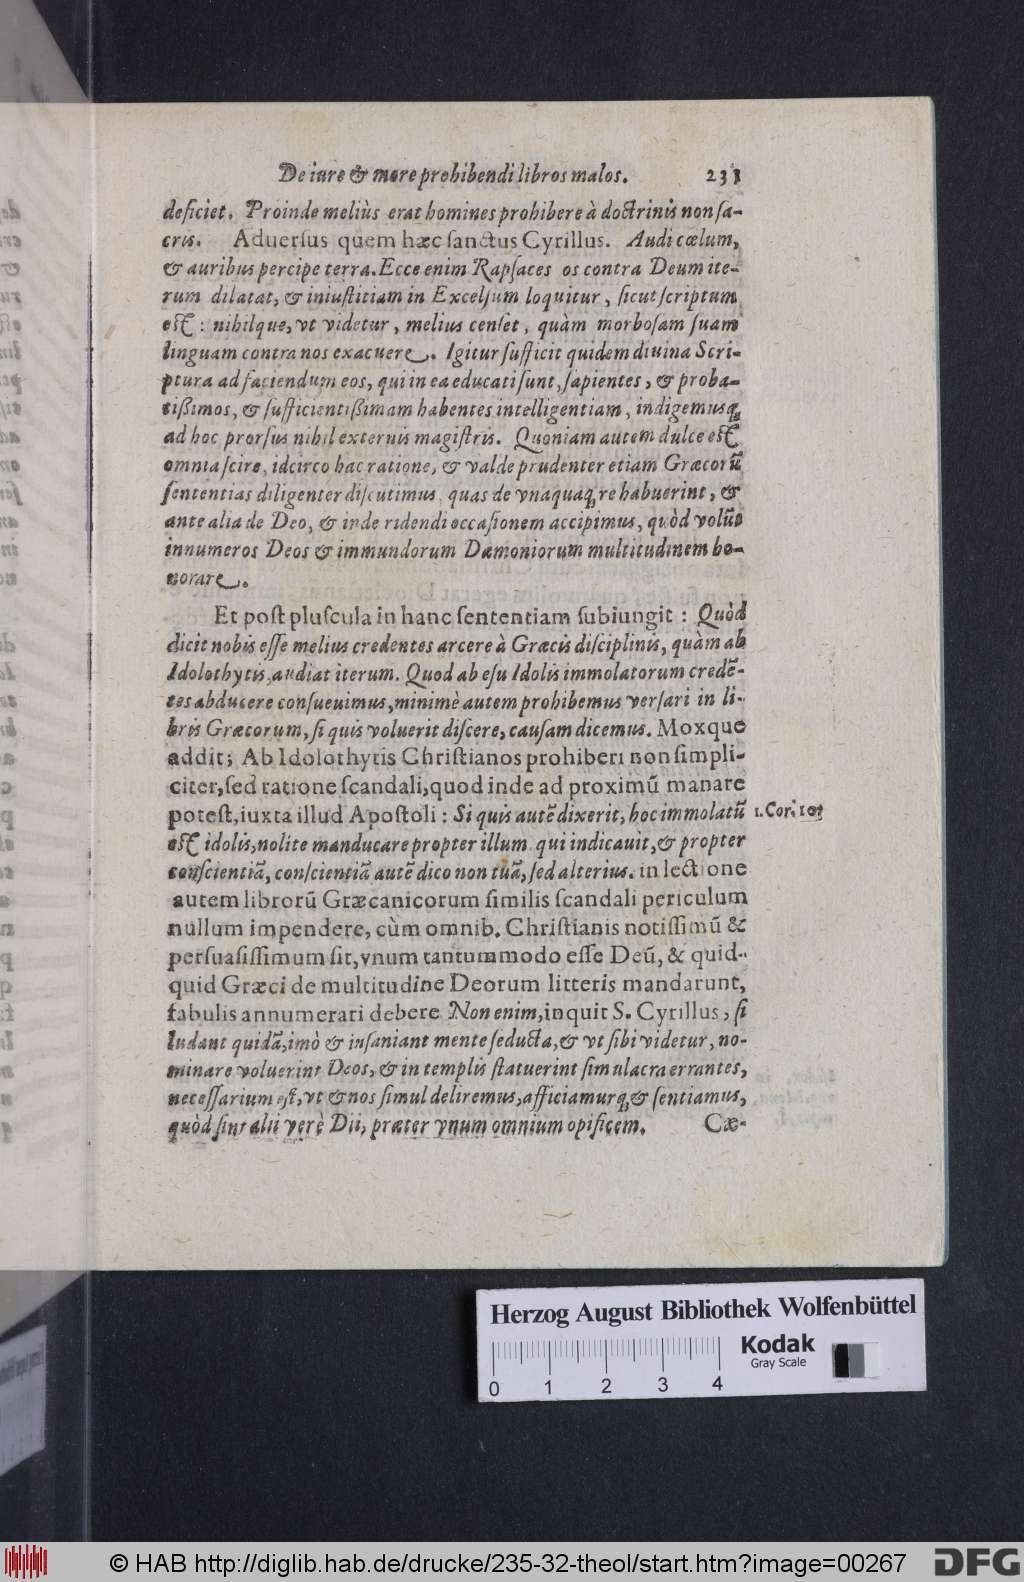 De iure & more prohibendi libros malos. 231
deficiet. Proinde meliùs erat homines prohibere à doctrinis non sa-
cris. Aduersus quem hæc sanctus Cyrillus. Audi cœlum,
& auribus percipe terra. Ecce enim Rapsaces os contra Deum ite-
rum dilatat, & iniustitiam in Excelsum loquitur, sicut scriptum
est: nihilque, vt videtur, melius censet, quàm morbosam suam
linguam contra nos exacuere. Igitur sufficit quidem diuina Scri-
ptura ad faciendum eos, qui in ea educati sunt, sapientes, & proba-
tißimos, & sufficientißimam habentes intelligentiam, indigemusq;
ad hoc prorsus nihil externis magistris. Quoniam autem dulce est
omnia scire, idcirco hac ratione, & valde prudenter etiam Græcorũ
sententias diligenter discutimus, quas de vnaquaq; re habuerint, &
ante alia de Deo, & inde ridendi occasionem accipimus, quòd volũt
innumeros Deos & immundorum Dæmoniorum multitudinem ho-
norare.
Et post pluscula in hanc sententiam subiungit: Quòd
dicit nobis esse melius credentes arcere à Græcis disciplinis, quàm ab
Idolothytis, audiat iterum. Quod ab esu Idolis immolatorum credẽ-
tes abducere consueuimus, minimè autem prohibemus versari in li-
bris Græcorum, si quis voluerit discere, causam dicemus. Moxque
addit; Ab Idolothytis Christianos prohiberi non simpli-
citer, sed ratione scandali, quod inde ad proximũ manare
potest, iuxta illud Apostoli: Si quis autẽ dixerit, hoc immolatũ
1. Cor. 10.
est idolis, nolite manducare propter illum qui indicauit, & propter
conscientiã, conscientiã autẽ dico non tuã, sed alterius. in lectione
autem librorũ Græcanicorum similis scandali periculum
nullum impendere, cùm omnib. Christianis notissimũ &
persuasissimum sit, vnum tantummodo esse Deũ, & quid-
quid Græci de multitudine Deorum litteris mandarunt,
fabulis annumerari debere. Non enim, inquit S. Cyrillus, si
ludant quidã, imò & insaniant mente seducta, & vt sibi videtur, no-
minare voluerint Deos, & in templis statuerint simulacra errantes,
necessarium est, vt & nos simul deliremus, afficiamurq; & sentiamus,
quòd sint alii verè Dii, præter vnum omnium opificem. Cæ-
Herzog August Bibliothek Wolfenbüttel
Kodak
Gray Scale
0 1 2 3 4
© HAB http://diglib.hab.de/drucke/235-32-theol/start.htm?image=00267
DFG